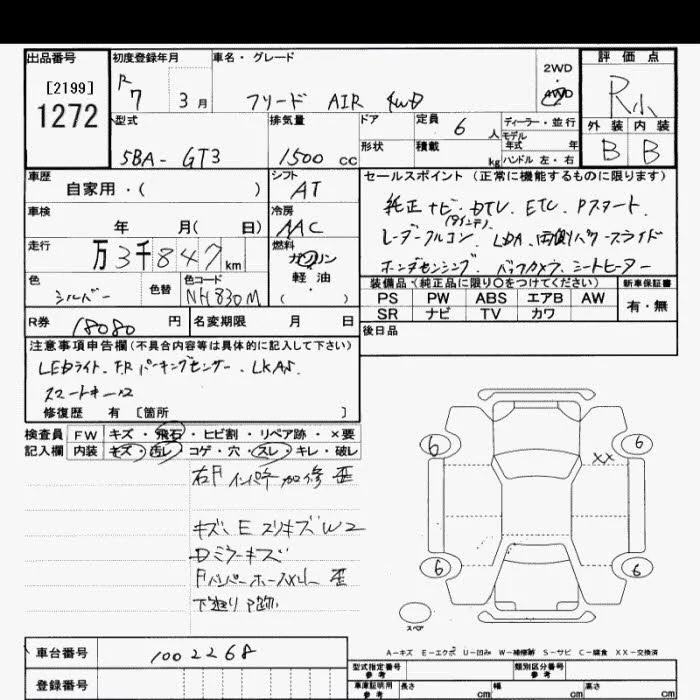 出品番号
[2199]
1272
初度登録年月
R 7 3月
車名・グレード
フリード AIR 4WD
2WD
4WD
評価点
R小
外装 内装
B B
型式
5BA- GT3
排気量
1500 cc
ドア
形状
定員 6 人
積載 kg
ディーラー・並行
モデル年式 年
ハンドル 左・右
車歴
自家用・( )
シフト
AT
車検
年 月( 日)
冷房
AAC
走行
万3千847km
燃料
ガソリン
軽油
( )
色
シルバー
色替
色コード
NH830M
R券 18080 円
名変期限 月 日
セールスポイント (正常に機能するものに限ります)
純正ナビ・DTV. ETC. Pスタート.
レーダークルコン. LDA. 両側パワースライド
ホンダセンシング. バックカメラ. シートヒーター
装備品(純正品に限り○をつけてください)
PS PW ABS エアB AW
SR ナビ TV カワ
新車保証書
有・無
後日品
注意事項申告欄 (不具合内容等は具体的に記入して下さい)
LEDライト. F.R パーキングセンサー. LKAS.
スマートキー
修復歴 有 [箇所 ]
検査員記入欄
FW キズ・飛石・ヒビ割・リペア跡・×要
内装 キズ・汚レ・コゲ・穴・スレ・キレ・破レ
右Fインパネ 加修 歪
キズ、E スリキズ W2
Dミラーキズ
Fバンパーホース 歪
下廻り P跡
6
6
XX
6
6
スペア
A-キズ E-エクボ U-凹み W-補修跡 S-サビ C-腐食 XX-交換済
車台番号
1002268
登録番号
型式指定番号
参考
類別区分番号
参考
車庫証明用
参考
長さ cm
幅 cm
高さ cm